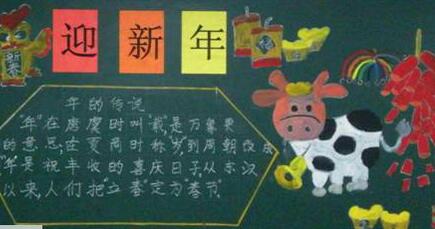 新春
迎新年
年的传说
"年"在唐虞时叫"载",是万象更
的意思,在夏商时称岁到周朝改成
"年"是祝丰收的喜庆日子,从东汉
以来,人们把"立春"定为"春节"